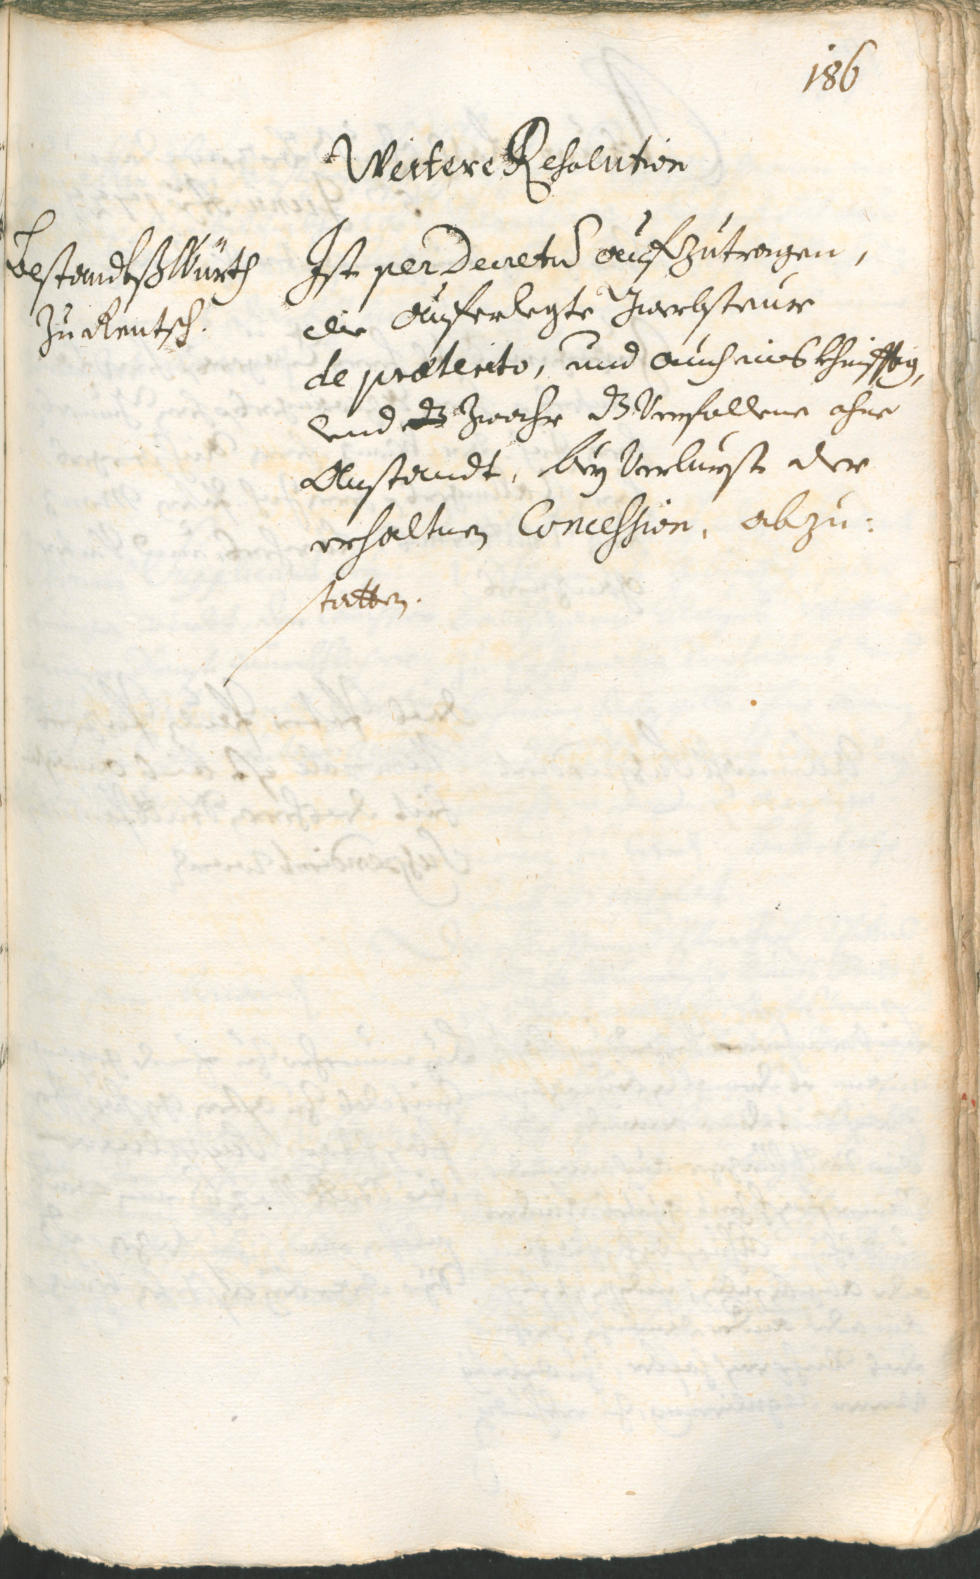 186
Weitere Resolution
Bestandtß Würth
zu Rentsch.
Ist per Decretum aufzutragen,
die auferlegte Jarbsteur
de praeterito, und auch ins khinfftig,
und zwahr dz Verfallene ohne
Anstandt, bey Verlurst der
erhaltnen Concession, abzu:
statten.